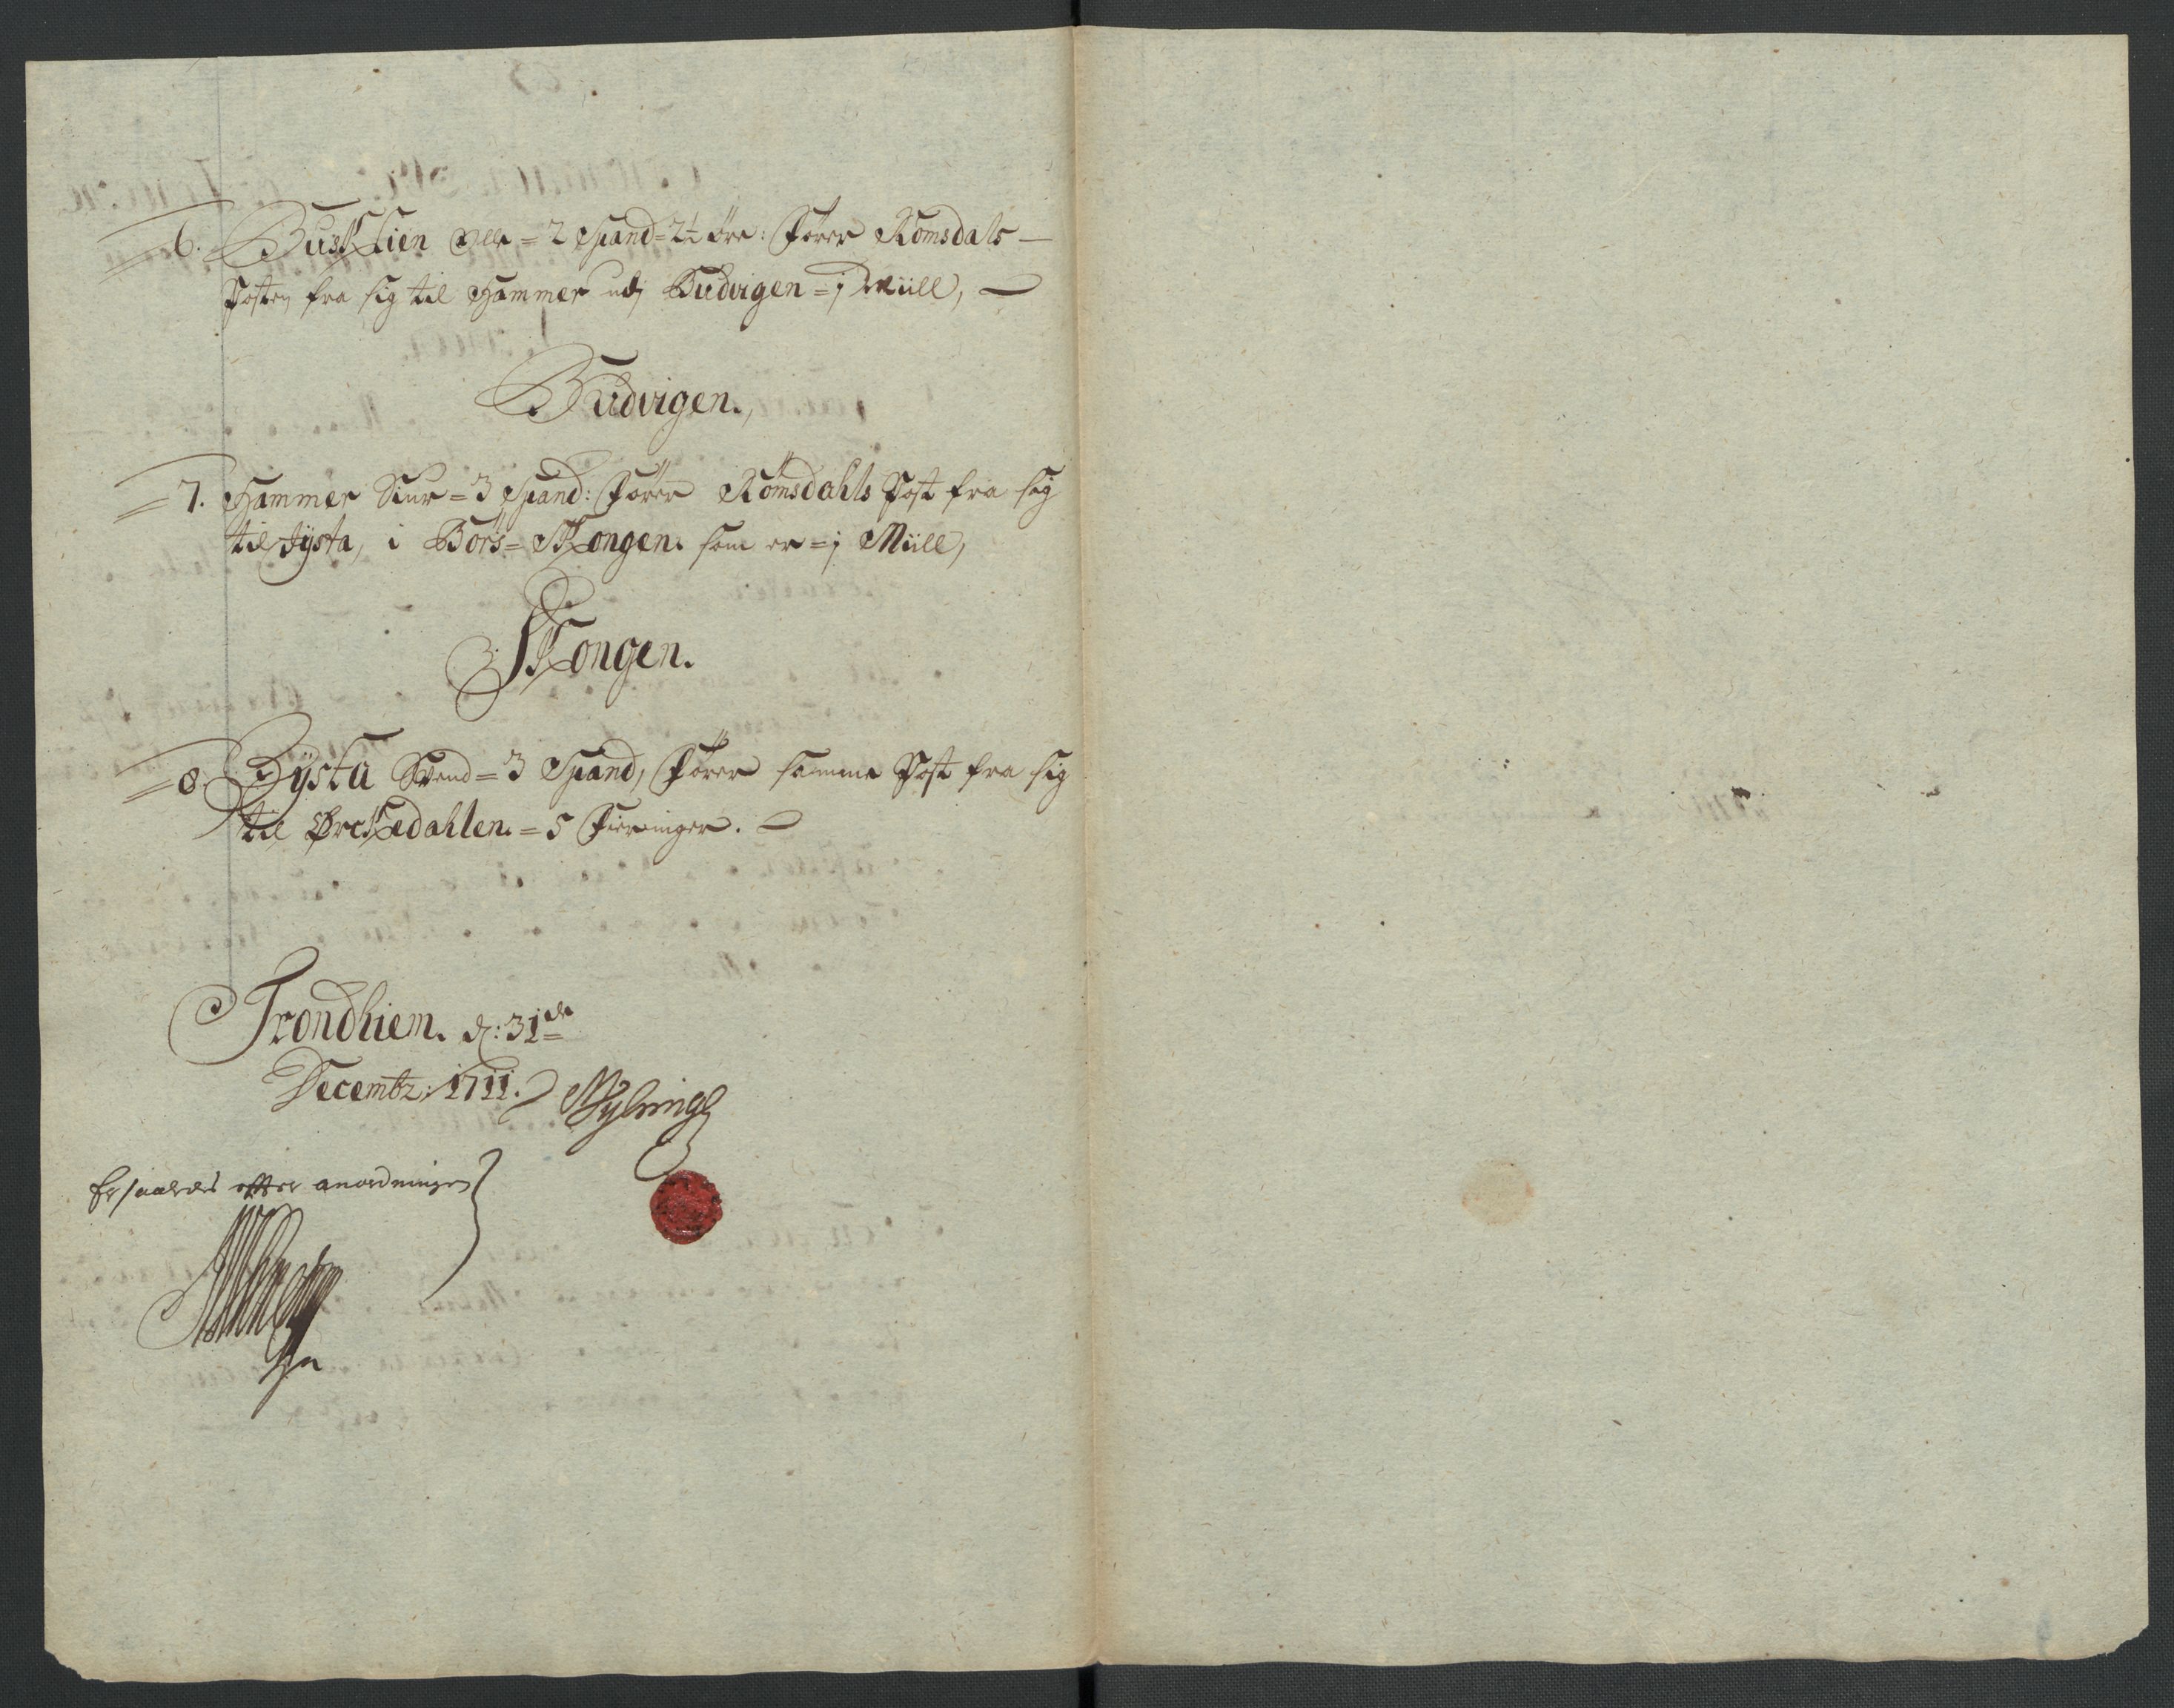 6. Busklien Olle = 2 Spand = 2½ øre: Fører Romsdals —
Posten fra sig til Hammer udj Budvigen = j Miill, —
Budvigen.,
7. Hammer Siur = 3 Spand: Fører Römsdahls Post fra sig
til Dÿsta, i Börs = Skongen. som er = j Miill,
Skongen.
8. Dÿsta Svend = 3 Spand, Fører samme Post fra sig
til Ørckedahlen. = 5 Fieringer. —
Trondhiem. d: 31de
Decembr: 1711.
Er saaledes efter anordningen